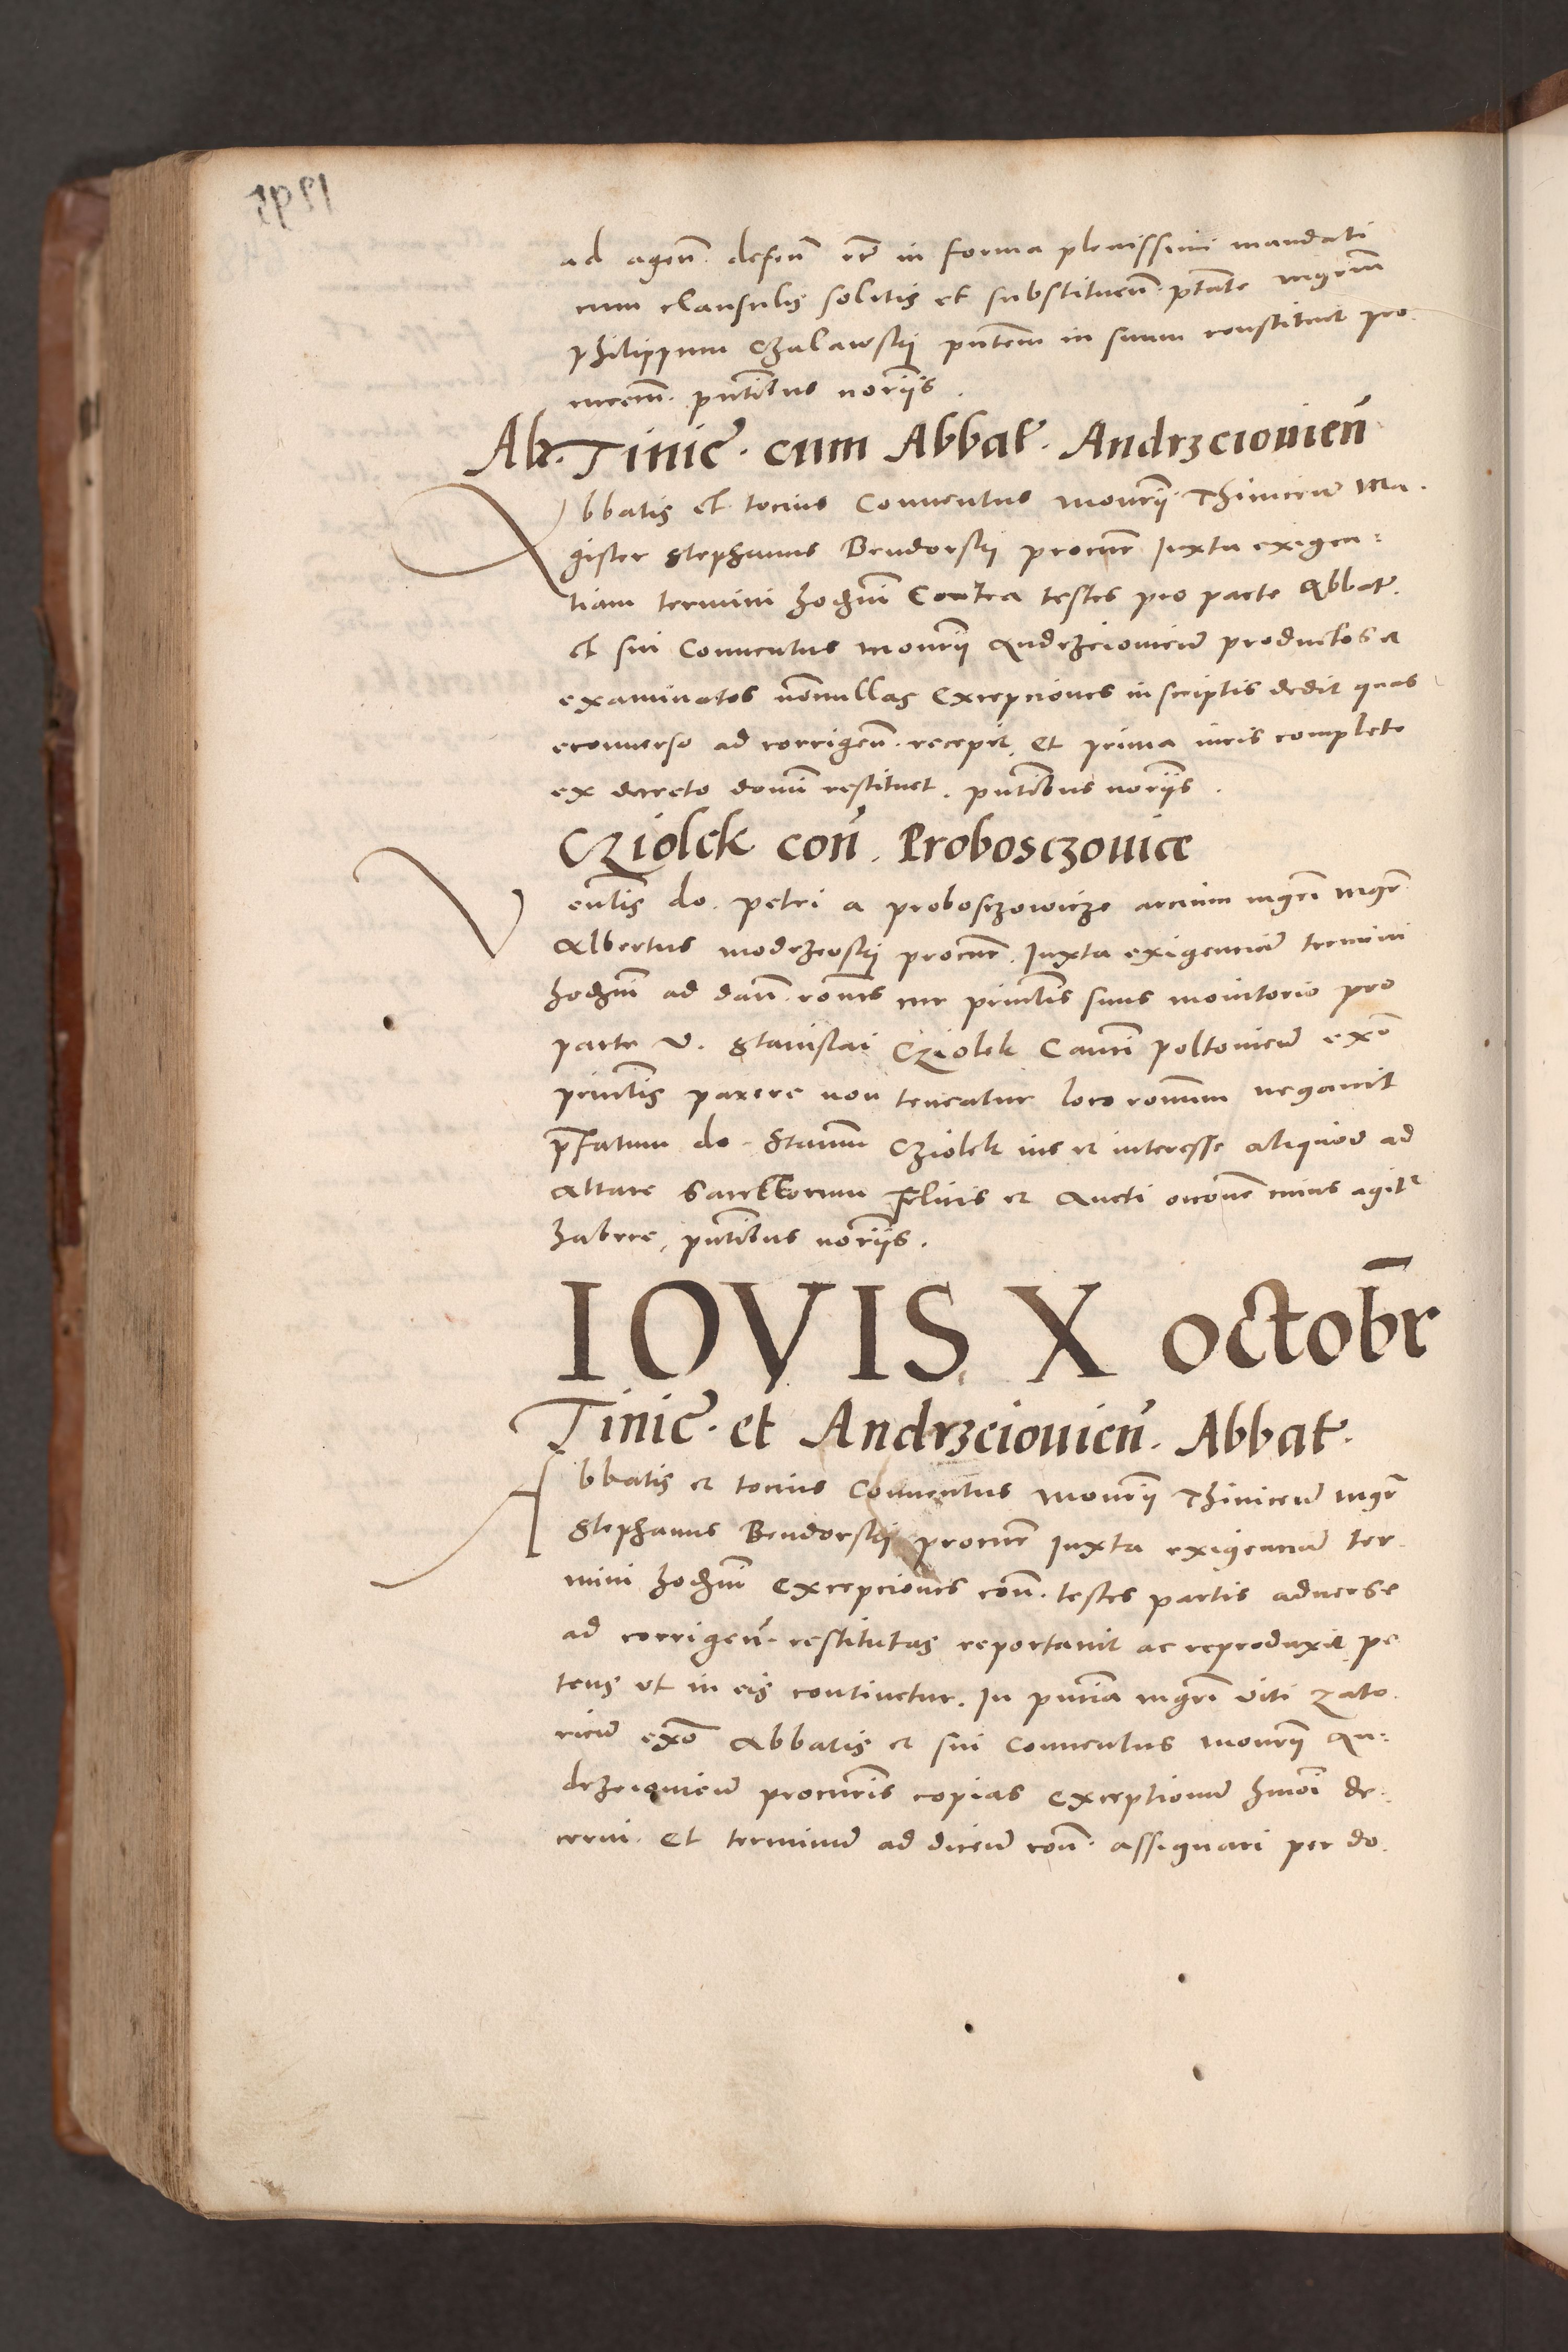 ad agen̄. defen̄ etc̄ in forma plenissimi mandati
cum clausulis solitis et substituen̄. ptāte mgrm̄
philippum Czulawskij pntēm in suum constituit pro
curem̄. pntībus norīis.
Ab. Tinic̄. cum Abbat̄. Andrzeiouien̄
Abbatis et tocius Conuentus monrīj Thiniceń Ma.
gister Stephanus Bendorskij procur̄ Iuxta exigen:
tiam termini hodnī Contra testes pro parte Abbat̄.
et sui Conuentus monrīj Andrzeiouień productos et
examinatos nōnnullas Excepciones in scriptis dedit quas
econuerso ad corrigen̄. recepit, Et prima iuris complete
ex decreto domī restituet. pntībus norīis.
Cziolek con̄. Probosczouice
Ventīs do. petri a probosczowicze arcium mgrī mgr̄
Albertus modrzeoskij procur̄. Iuxta exigenciā termini
hodnī ad dan̄. ronēs cur principlīs suus monitorio pro
parte V. Stanislai Cziolek Canci poltouień exō
princlīs parere non teneatur loco ronum negauit
prēfatum do. Stanm̄ Cziolek ius et interesse aliquod ad
Altare Sanctorum Felicis et Aucti occone cuius agitr
habere, pntībus norīis.
IOVIS X octobr̄
Tinic̄. et Andrzeiouien̄. Abbat̄.
Abbatis et tocius Conuentus monrīj Thiniceń mgr̄
Stephanus Bendorskij procur̄ Iuxta exigenciā ter
mini hodnī Excepciones con̄. testes partis aduerse
ad corrigen̄. restitutas reportauit ac reproduxit pe
tens vt in eis continetur. In pntīa mgrī viti Zato.
rień exō Abbatis et sui Conuentus monrīj An:
drzeiouień procuris copias Exceptionum hmōi de:
cerni. Et terminū ad diceń con̄. assignari per do.